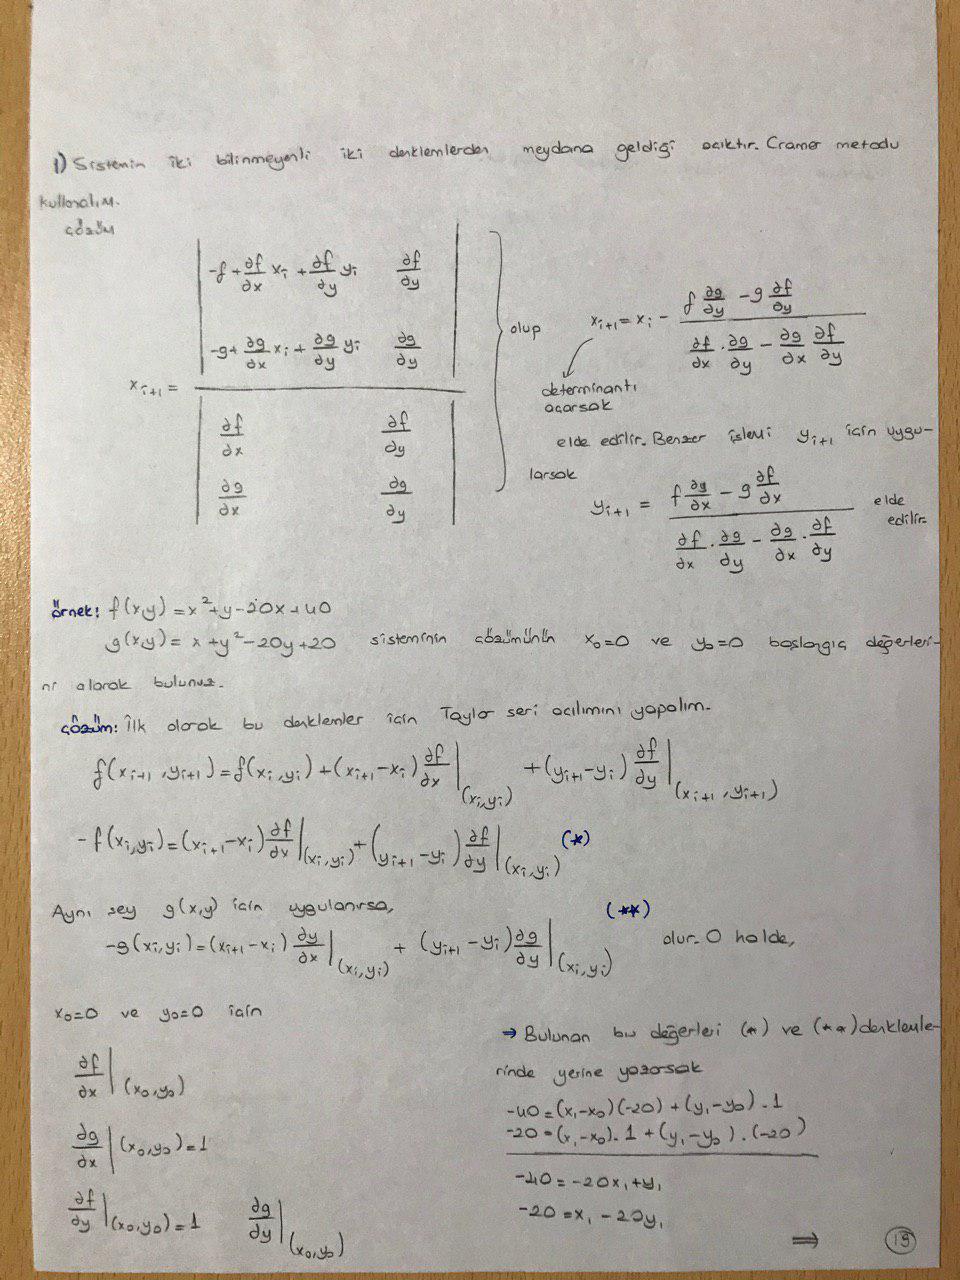 1) Sistemin iki bilinmeyenli iki denklemlerden meydana geldiği açıktır. Cramer metodu
kullanalım.
çözüm
x_{i+1} = | -f + ∂f/∂x x_i + ∂f/∂y y_i   ∂f/∂y |
| -g + ∂g/∂x x_i + ∂g/∂y y_i   ∂g/∂y |
/
| ∂f/∂x   ∂f/∂y |
| ∂g/∂x   ∂g/∂y |
olup
x_{i+1} = x_i - (f ∂g/∂y - g ∂f/∂y) / (∂f/∂x . ∂g/∂y - ∂g/∂x ∂f/∂y)
determinantı
açarsak
elde edilir. Benzer işlemi y_{i+1} için uygu-
larsak
y_{i+1} = (f ∂g/∂x - g ∂f/∂x) / (∂f/∂x . ∂g/∂y - ∂g/∂x . ∂f/∂y) elde
edilir.
örnek: f(x,y) = x²+y-20x+40
g(x,y) = x+y²-20y+20 sisteminin çözümünün x₀=0 ve y₀=0 başlangıç değerleri-
ni alarak bulunuz.
çözüm: İlk olarak bu denklemler için Taylor seri açılımını yapalım.
f(x_{i+1}, y_{i+1}) = f(x_i, y_i) + (x_{i+1} - x_i) ∂f/∂x |(x_i, y_i) + (y_{i+1} - y_i) ∂f/∂y |(x_{i+1}, y_{i+1})
- f(x_i, y_i) = (x_{i+1} - x_i) ∂f/∂x |(x_i, y_i) + (y_{i+1} - y_i) ∂f/∂y |(x_i, y_i) (*)
Aynı şey g(x,y) için uygulanırsa, (**)
-g(x_i, y_i) = (x_{i+1} - x_i) ∂y/∂x |(x_i, y_i) + (y_{i+1} - y_i) ∂g/∂y |(x_i, y_i) olur. O halde,
x₀=0 ve y₀=0 için
∂f/∂x |(x₀,y₀)
∂g/∂x |(x₀,y₀) = 1
∂f/∂y |(x₀,y₀) = 1   ∂g/∂y |(x₀,y₀)
⇒ Bulunan bu değerleri (*) ve (**) denklemle-
rinde yerine yazarsak
-40 = (x₁-x₀)(-20) + (y₁-y₀) . 1
-20 = (x₁-x₀) . 1 + (y₁-y₀) . (-20)
-40 = -20x₁ + y₁
-20 = x₁ - 20y₁
⇒ 19